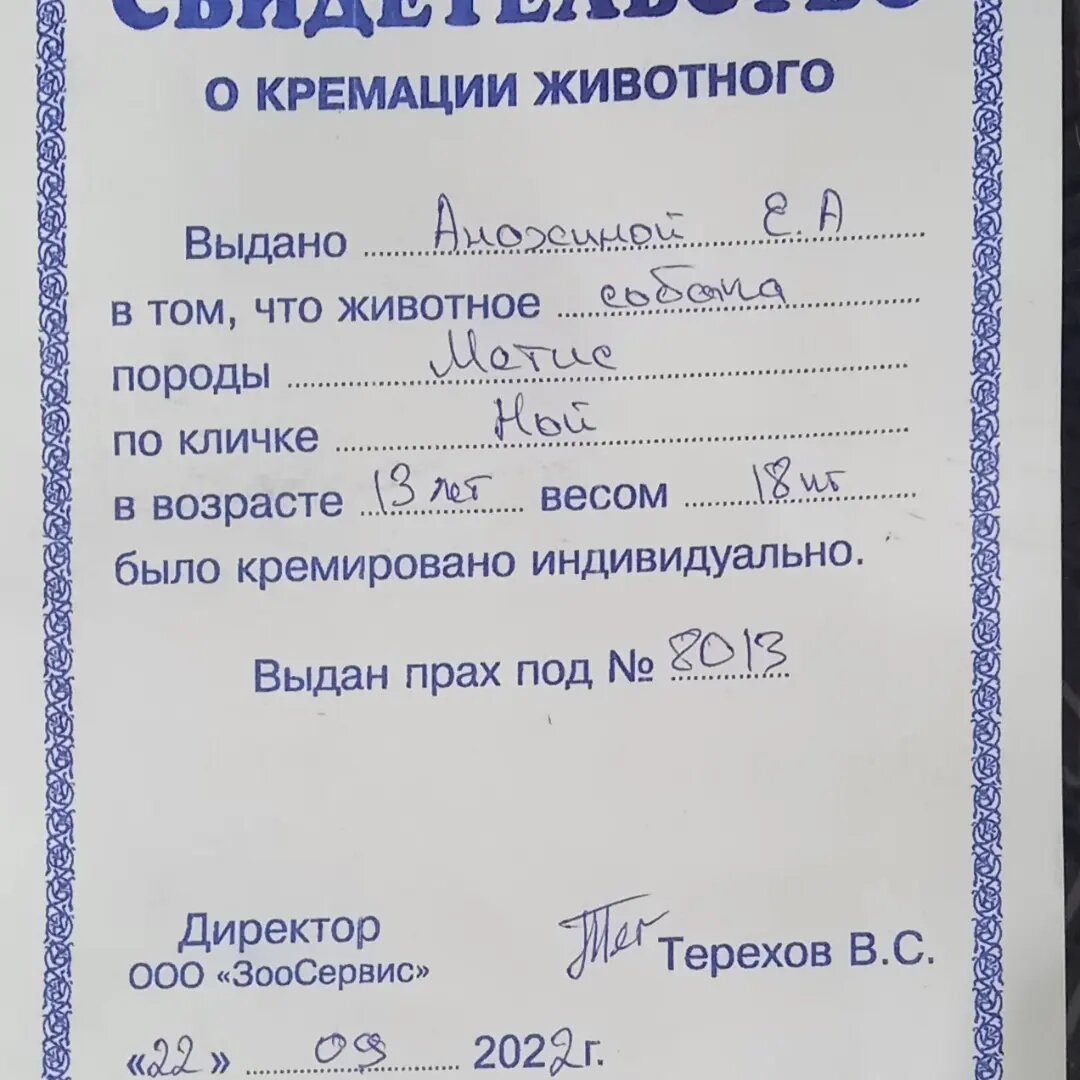 СВИДЕТЕЛЬСТВО
О КРЕМАЦИИ ЖИВОТНОГО
Выдано Аножиной Е.А
в том, что животное собака
породы Метис
по кличке Ной
в возрасте 13 лет весом 18 кг
было кремировано индивидуально.
Выдан прах под № 8013
Директор
ООО «ЗооСервис» Терехов В.С.
«22» 09 2022г.